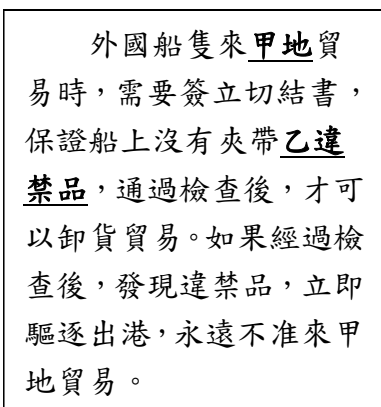 外國船隻來甲地貿
易時，需要簽立切結書，
保證船上沒有夾帶乙違
禁品，通過檢查後，才可
以卸貨貿易。如果經過檢
查後，發現違禁品，立即
驅逐出港，永遠不准來甲
地貿易。